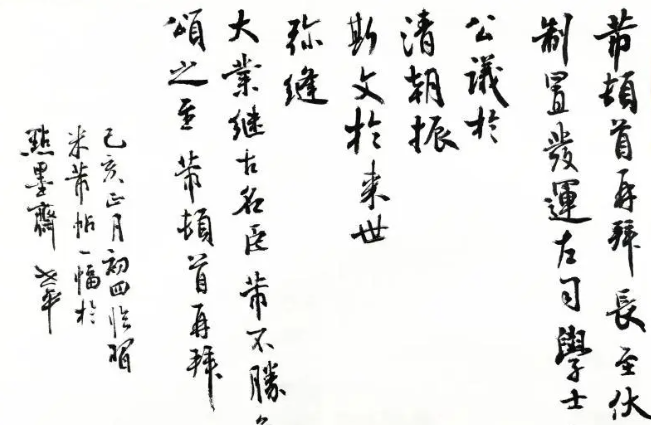 芾頓首再拜長至伏
制置發運左司學士
公議於
清朝振
斯文於來世
弥縫
大業继古名臣芾不勝
頌之至芾頓首再拜
己亥正月初四临習
米芾帖一幅於
點墨齋